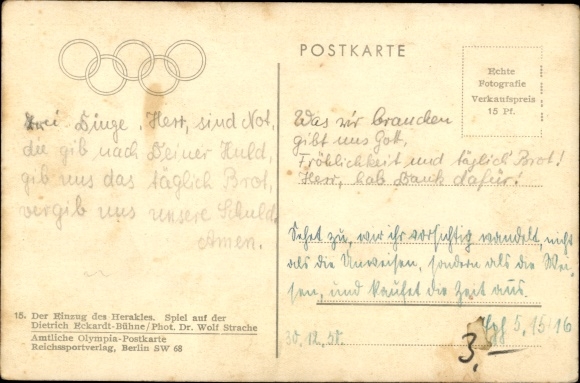 drei Dinge, Herr, sind Not,
die gib nach Deiner Huld,
gib uns das täglich Brot,
vergib uns unsere Schuld.
Amen.
15. Der Einzug des Herakles. Spiel auf der
Dietrich Eckardt-Bühne/Phot. Dr. Wolf Strache
Amtliche Olympia-Postkarte
Reichssportverlag, Berlin SW 68
POSTKARTE
Echte
Fotografie
Verkaufspreis
15 Pf.
Was wir brauchen
gibt uns Gott,
Fröhlichkeit und täglich Brot!
Herr, hab Dank dafür!
Sehet zu, wie ihr vorsichtig wandelt, nicht
als die Unweisen, sondern als die Wei-
sen, und kaufet die Zeit aus.
Eph 5, 15 16
30.12.50.
3,—